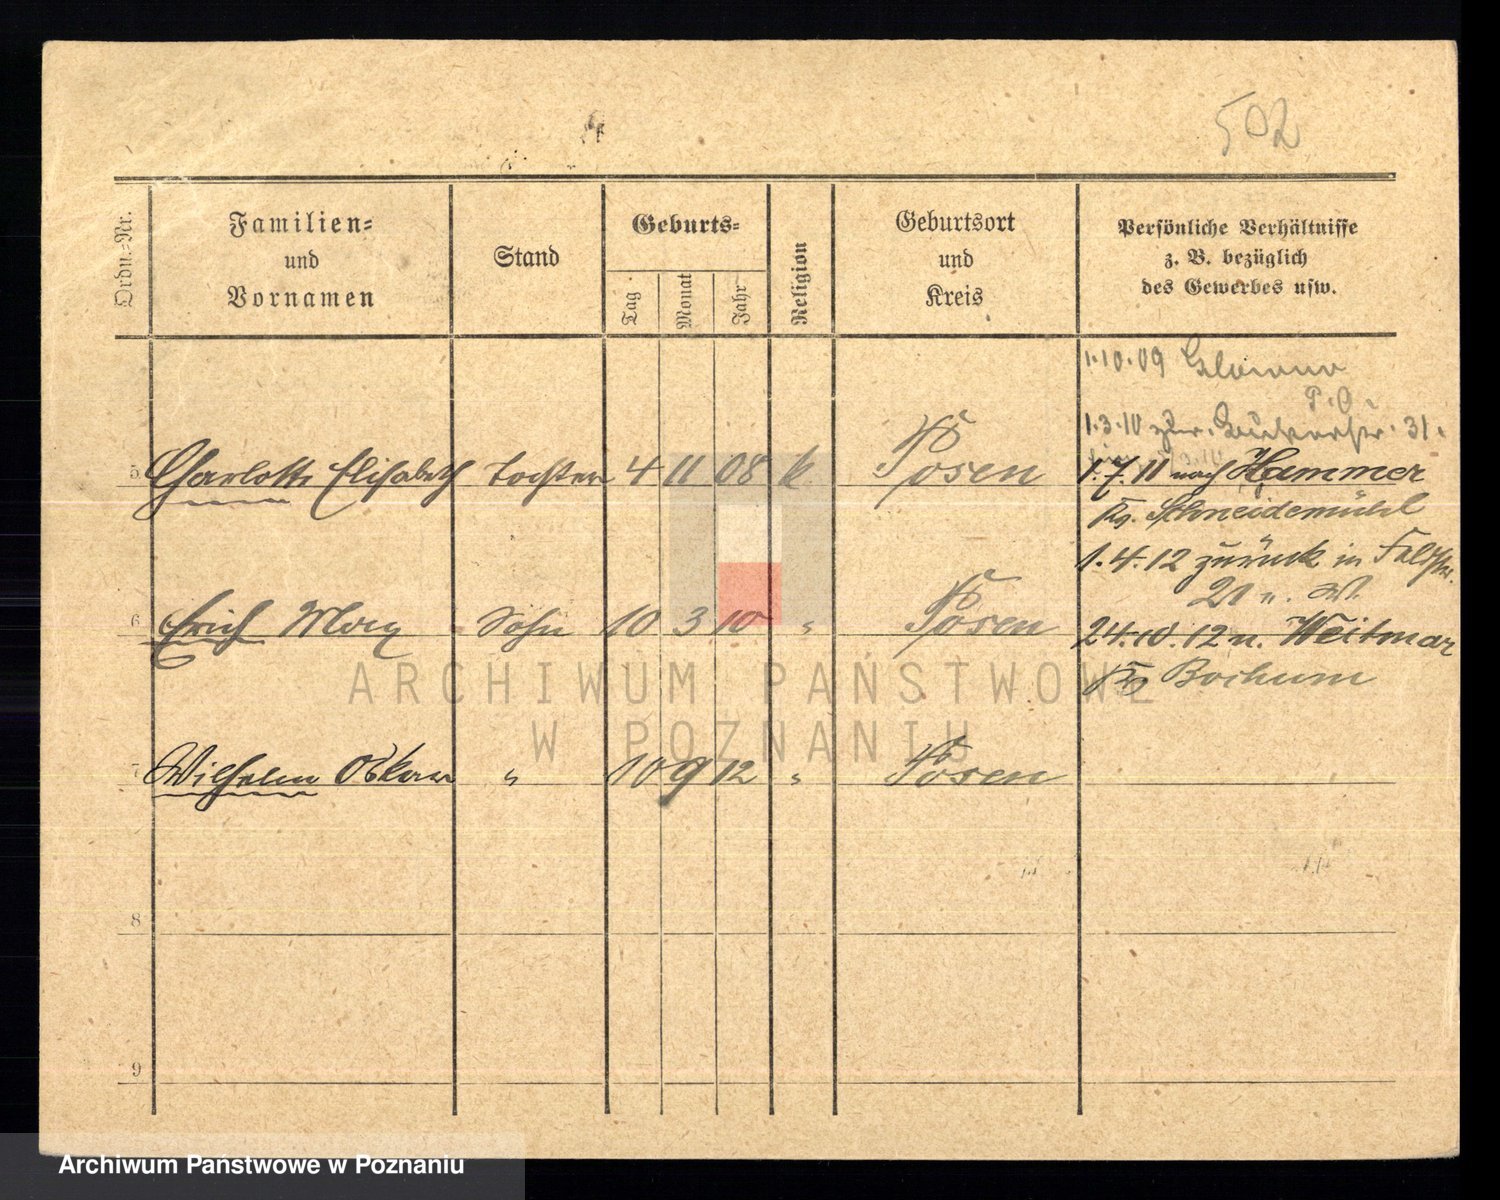 502
Ordn.-Nr.
Familien-
und
Vornamen
Stand
Geburts-
Tag
Monat
Jahr
Religion
Geburtsort
und
Kreis
Persönliche Verhältnisse
z. B. bezüglich
des Gewerbes usw.
1.10.09
P.O.
1.3.10 31.
5 Charlotte Elisabeth Tochter 4 11 08 k. Posen
1.7.11 nach Hammer
Kr. Schneidemühl
1.4.12 zurück in
21 n. W.
6 Erich Max Sohn 10 3 10 " Posen
24.10.12 n. Weitmar
Kr. Bochum
7 Wilhelm Oskar " 10 9 12 " Posen
8
9
ARCHIWUM PAŃSTWOWE
W POZNANIU
Archiwum Państwowe w Poznaniu